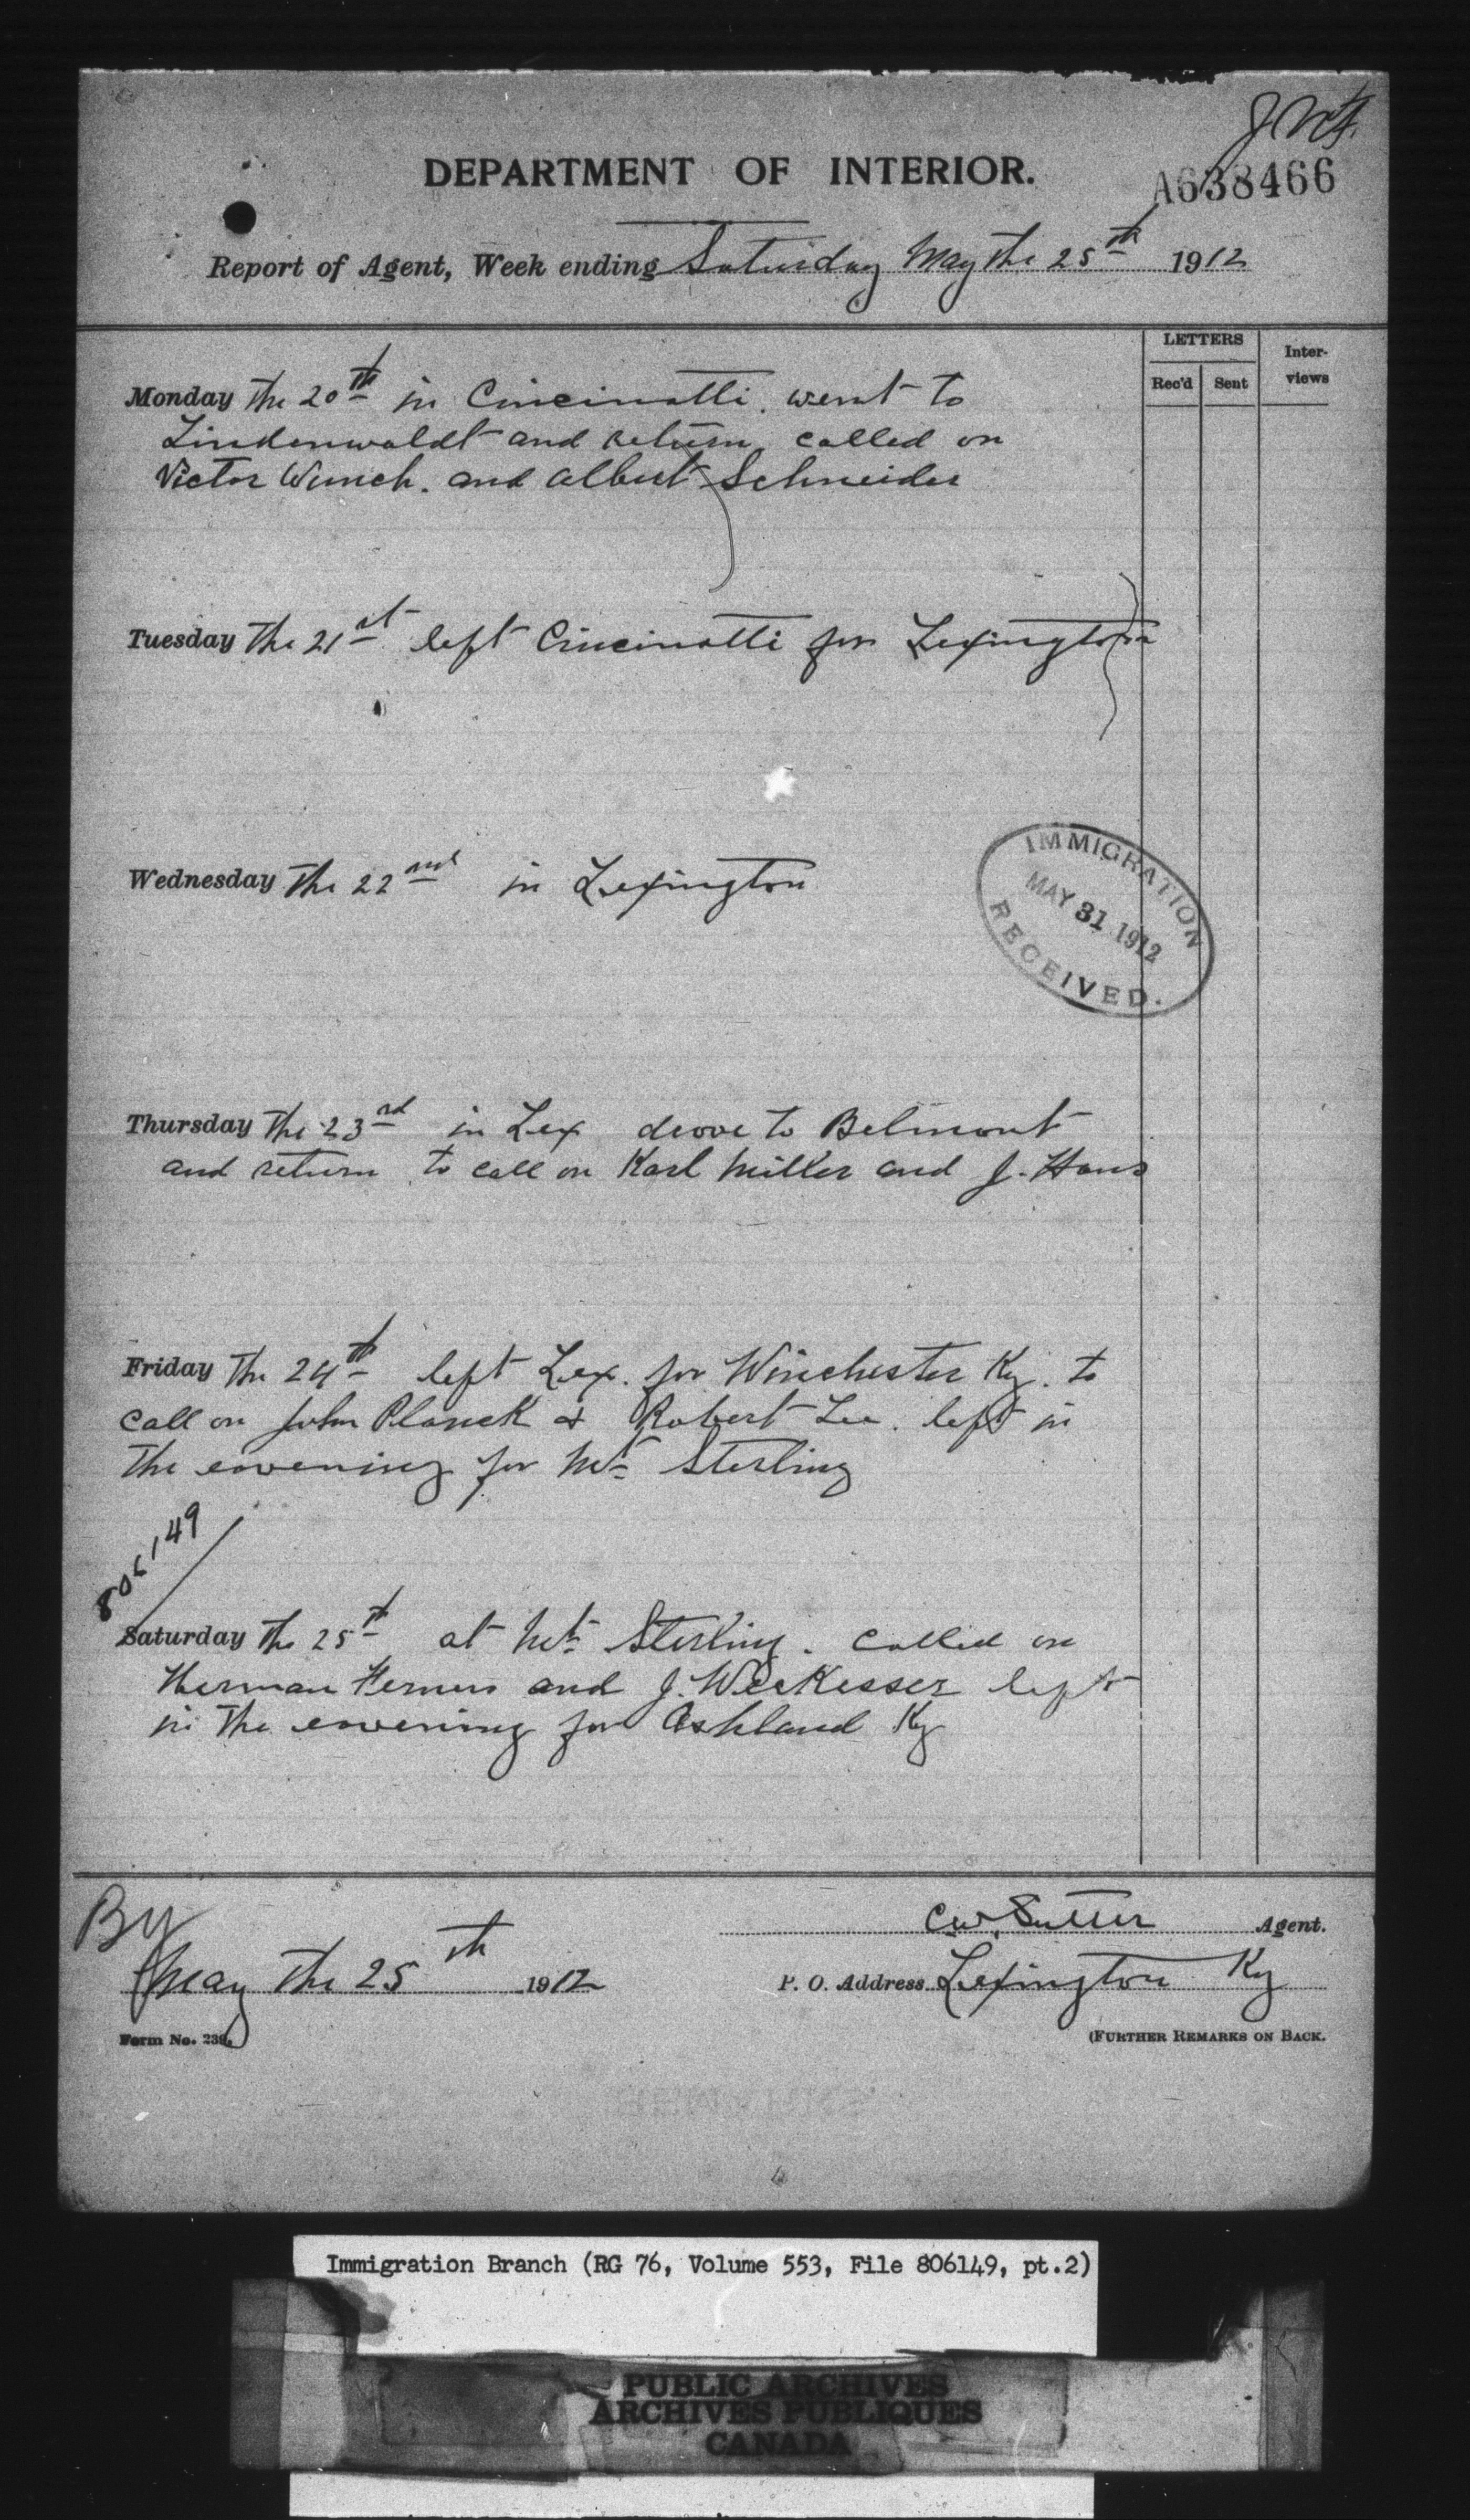 J.W.S.
DEPARTMENT OF INTERIOR.
A638466
Report of Agent, Week ending Saturday May the 25th 1912
LETTERS
Inter-
views
Rec'd Sent
Monday the 20th in Cincinatti. went to
Lindenwaldt and return, called on
Victor Wunch. and Albert Schneider
Tuesday the 21st left Cincinatti for Lexington
Wednesday the 22nd in Lexington
IMMIGRATION
MAY 31 1912
RECEIVED.
Thursday the 23rd in Lex drove to Belmont
and return to call on Karl Miller and J. Haus
Friday the 24th left Lex. for Winchester Ky. to
call on John Planck & Robert Lee. left in
the eovening for Mt Sterling
806149
Saturday the 25th at Mt Sterling. called on
Herman and J. Weckesser left
in the eovening for Ashland Ky
By
C.W. Sutter Agent.
May the 25th 1912
P. O. Address Lexington Ky
Form No. 239.
(FURTHER REMARKS ON BACK.
Immigration Branch (RG 76, Volume 553, File 806149, pt.2)
PUBLIC ARCHIVES
ARCHIVES PUBLIQUES
CANADA